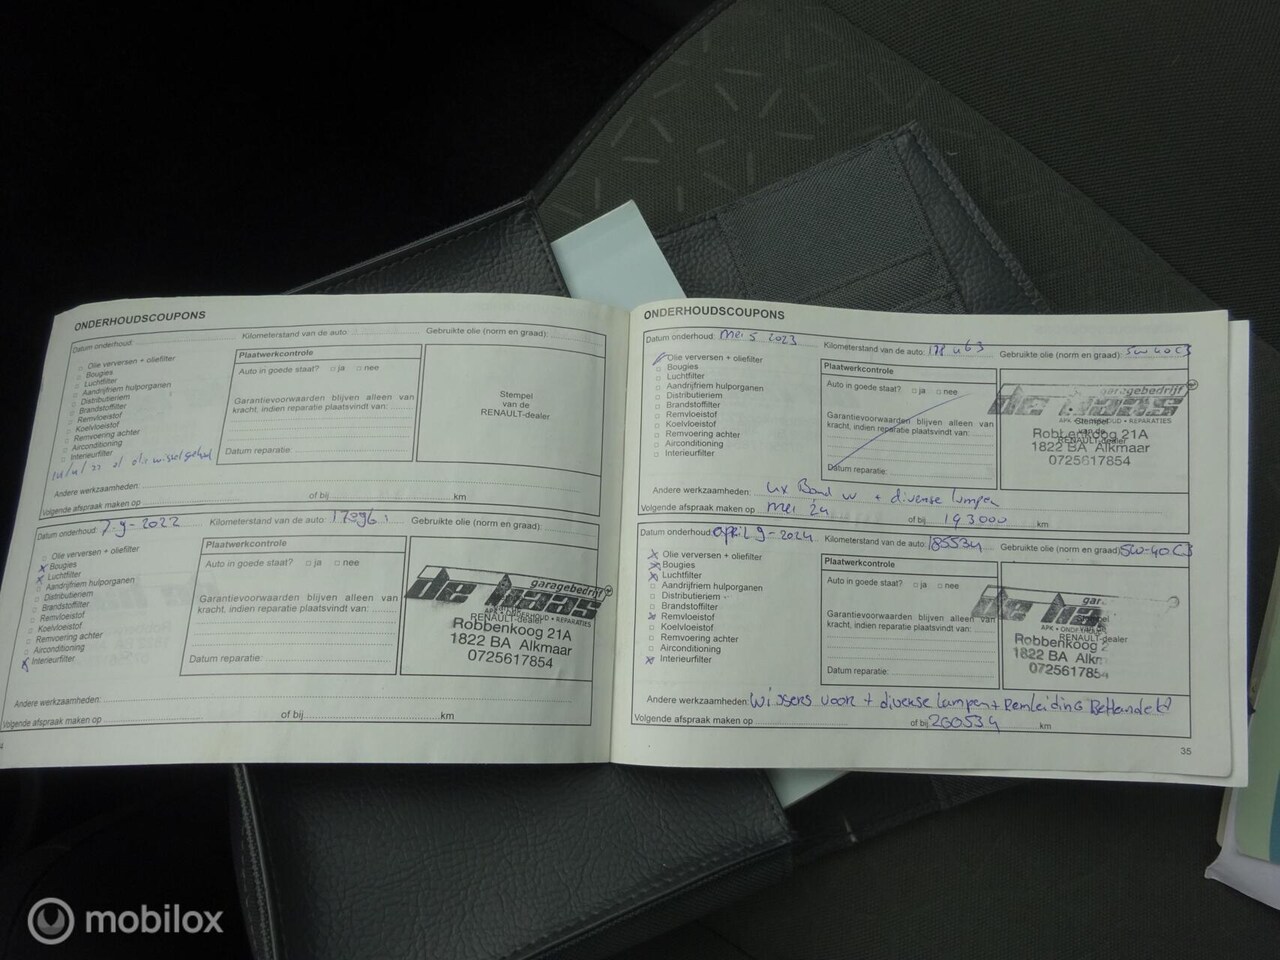 ONDERHOUDSCOUPONS
Datum onderhoud:
Kilometerstand van de auto:
Gebruikte olie (norm en graad):
Olie verversen + oliefilter
Bougies
Luchtfilter
Aandrijfriem hulporganen
Distributieriem
Brandstoffilter
Remvloeistof
Koelvloeistof
Remvoering achter
Airconditioning
Interieurfilter
Plaatwerkcontrole
Auto in goede staat? ja nee
Garantievoorwaarden blijven alleen van
kracht, indien reparatie plaatsvindt van:
Datum reparatie:
Stempel
van de
RENAULT-dealer
Andere werkzaamheden:
Volgende afspraak maken op of bij km
Datum onderhoud: 7-9-2022
Kilometerstand van de auto:
Gebruikte olie (norm en graad):
Olie verversen + oliefilter
Bougies
Luchtfilter
Aandrijfriem hulporganen
Distributieriem
Brandstoffilter
Remvloeistof
Koelvloeistof
Remvoering achter
Airconditioning
Interieurfilter
Plaatwerkcontrole
Auto in goede staat? ja nee
Garantievoorwaarden blijven alleen van
kracht, indien reparatie plaatsvindt van:
Datum reparatie:
garagebedrijf
de haas
APK • ONDERHOUD • REPARATIES
RENAULT-dealer
Robbenkoog 21A
1822 BA Alkmaar
0725617854
Andere werkzaamheden:
Volgende afspraak maken op of bij km
ONDERHOUDSCOUPONS
Datum onderhoud: mei 5 2023
Kilometerstand van de auto:
Gebruikte olie (norm en graad): 5w40 C3
Olie verversen + oliefilter
Bougies
Luchtfilter
Aandrijfriem hulporganen
Distributieriem
Brandstoffilter
Remvloeistof
Koelvloeistof
Remvoering achter
Airconditioning
Interieurfilter
Plaatwerkcontrole
Auto in goede staat? ja nee
Garantievoorwaarden blijven alleen van
kracht, indien reparatie plaatsvindt van:
Datum reparatie:
garagebedrijf
de haas
APK • ONDERHOUD • REPARATIES
Stempel
van de
RENAULT-dealer
Robbenkoog 21A
1822 BA Alkmaar
0725617854
Andere werkzaamheden: 4x Band w + diverse lampen
Volgende afspraak maken op mei 24 of bij 193000 km
Datum onderhoud: april 9-2024
Kilometerstand van de auto: 185534
Gebruikte olie (norm en graad): 5w-40 C3
Olie verversen + oliefilter
Bougies
Luchtfilter
Aandrijfriem hulporganen
Distributieriem
Brandstoffilter
Remvloeistof
Koelvloeistof
Remvoering achter
Airconditioning
Interieurfilter
Plaatwerkcontrole
Auto in goede staat? ja nee
Garantievoorwaarden blijven alleen van
kracht, indien reparatie plaatsvindt van:
Datum reparatie:
gar
de ha
RENAULT-dealer
Robbenkoog 2
1822 BA Alkm
072561785
Andere werkzaamheden: Wissers voor + diverse lampen + Remleiding Behandeld
Volgende afspraak maken op of bij 200534 km
35
mobilox